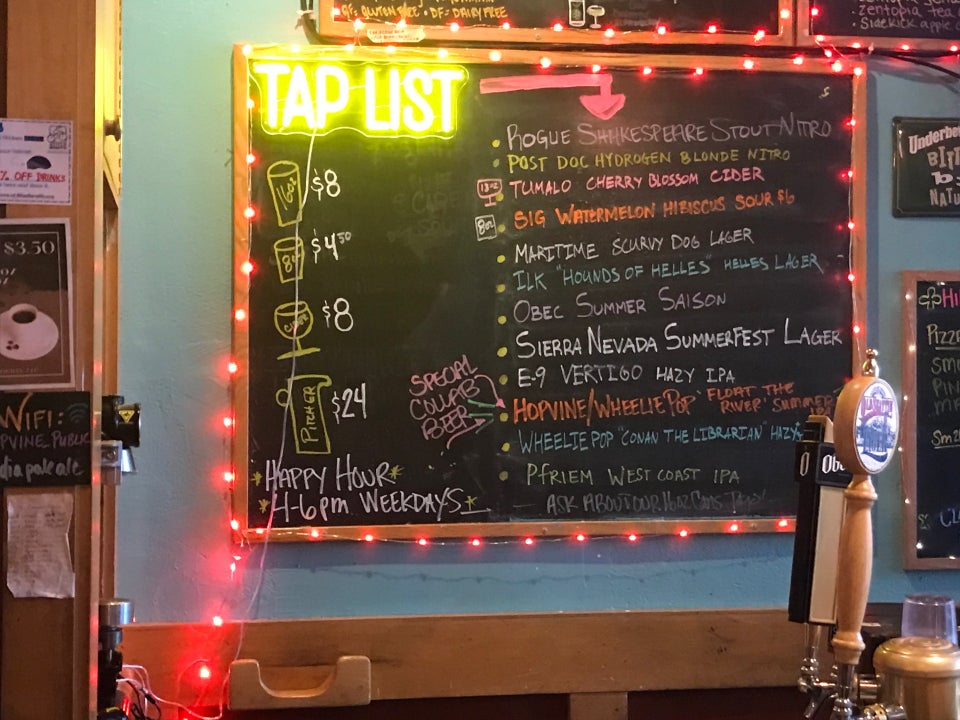 GF: GLUTEN FREE • DF: DAIRY FREE
• SIDEKICK APPLE
TAP LIST
16oz $8
8oz $4.50
$8
PITCHER $24
HAPPY HOUR
4-6pm WEEKDAYS
ROGUE SHAKESPEARE STOUT NITRO
POST DOC HYDROGEN BLONDE NITRO
TUMALO CHERRY BLOSSOM CIDER
8oz SIG WATERMELON HIBISCUS SOUR $6
MARITIME SCURVY DOG LAGER
ILK "HOUNDS OF HELLES" HELLES LAGER
OBEC SUMMER SAISON
SIERRA NEVADA SUMMERFEST LAGER
E-9 VERTIGO HAZY IPA
SPECIAL
COLLAB
BEER
HOPVINE/WHEELIE POP "FLOAT THE
RIVER" SUMMER
WHEELIE POP "CONAN THE LIBRARIAN" HAZY
PFRIEM WEST COAST IPA
ASK ABOUT OUR
% OFF DRINKS
$3.50
WIFI:
PVINE_PUBLIC
dia pale ale
Underbe
BIT
NATU
HI
PIZZE